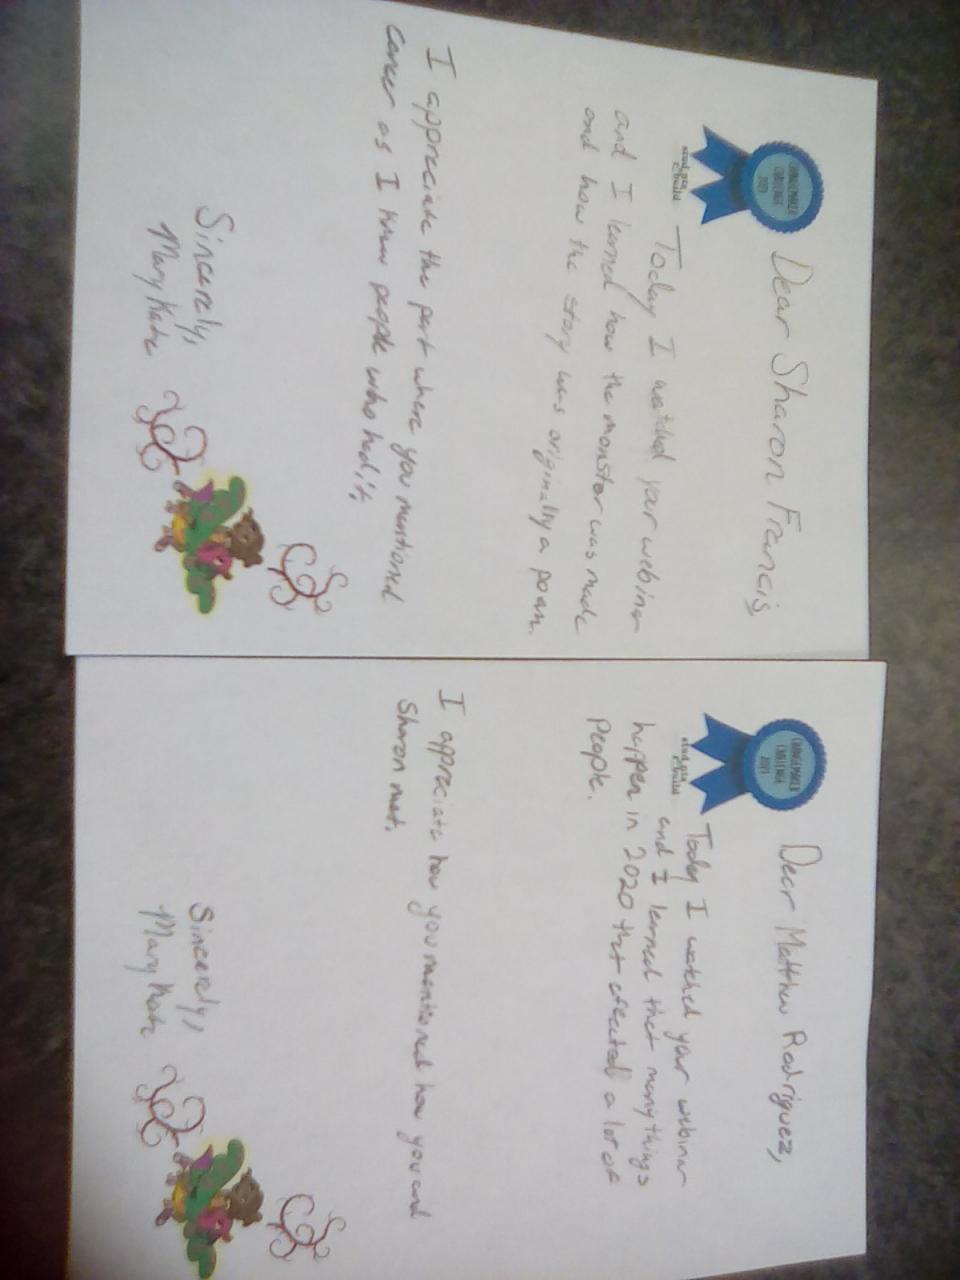 CHANGEMAKER
CHALLENGE
2021
Dear Sharon Francis,
Today I watched your webinar
and I lerned how the monster was made
and how the story was originally a poam.
I appreciate the part where you mentioned
cancer as I know people who had it.
Sincerely,
Mary Kate
CHANGEMAKER
CHALLENGE
2021
Dear Matthew Rodriguez,
Today I watched your webinar
and I learned that many things
happen in 2020 that affected a lot of
people.
I appreciate how you mentioned how you and
Sharon met.
Sincerely,
Mary Kate